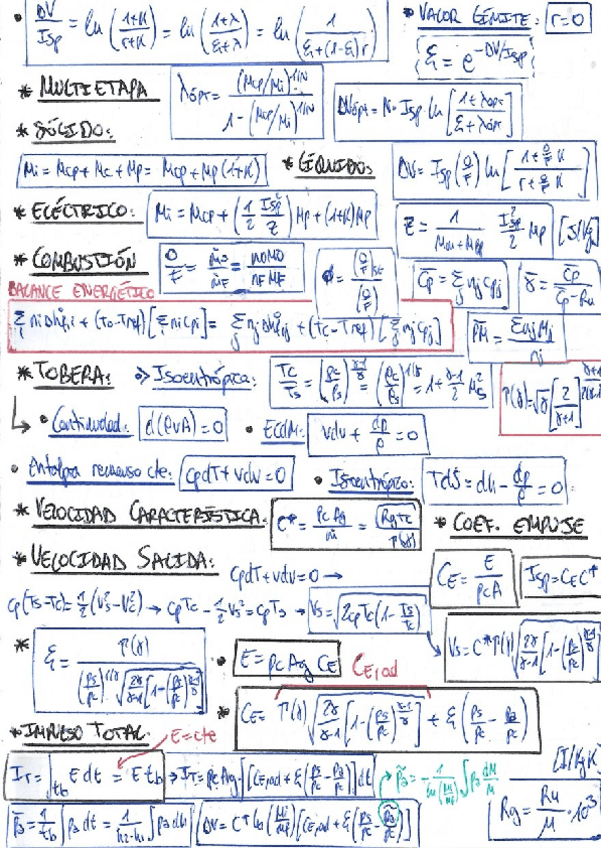 • ΔV/Isp = ln((1+K)/(r+K)) = ln((1+λ)/(ξ+λ)) = ln(1/(ξ+(1-ξ)r))
• VALOR LÍMITE: r=0
ξ = e^(-ΔV/Isp)
* MULTIETAPA
λópt = (Mcp/Mi)^(1/N) / (1-(Mcp/Mi)^(1/N))
ΔVópt = N·Isp ln[(1+λópt)/(ξ+λópt)]
* SÓLIDO:
Mi = Mcp + Mc + Mp = Mcp + Mp(1+K)
* LÍQUIDO:
ΔV = Isp(O/F) ln[(1+O/F K)/(r+O/F K)]
* ELÉCTRICO:
Mi = Mcp + (1/2 Isp²/Z) Mp + (1+K)Mp
Z = 1/(Mau+Mpp) Isp²/2 Mp [J/kg]
* COMBUSTIÓN
O/F = ṁo/ṁF = noMo/nFMF
ϕ = (O/F)st/(O/F)
Cp = Σj njcpj
γ = Cp/(Cp-Ru)
BALANCE ENERGÉTICO
Σi niΔhfi + (To-Tref)[Σ nicpi] = Σj njΔhfj + (Tc-Tref)[Σ njcpj]
PM = ΣnjMj/nj
* TOBERA:
⇒ Isoentrópica:
Tc/Ts = (pc/ps)^((γ-1)/γ) = (ρc/ρs)^(γ-1) = 1+(γ-1)/2 Ms²
Γ(γ) = √γ [2/(γ+1)]^((γ+1)/2(γ-1))
↳ • Continuidad: d(ρvA)=0
• ECDM: vdv + dp/ρ = 0
• Entalpía remanso cte: cpdT+vdv=0
• Isoentrópico: Tds = dh - dp/ρ = 0
* VELOCIDAD CARACTERÍSTICA:
C* = pcAg/ṁ = √(RgTc)/Γ(γ)
* COEF. EMPUJE
* VELOCIDAD SALIDA:
cpdT+vdv=0 →
CE = E/(pcA)
Isp = CE C*
cp(Ts-Tc) = 1/2(Vs²-Vc²) → cpTc - 1/2 Vs² = cpTs → Vs = √(2cpTc(1-Ts/Tc))
Vs = C*Γ(γ)√(2γ/(γ-1)[1-(ps/pc)^((γ-1)/γ)])
* ξ = Γ(γ) / ((ps/pc)^(1/γ) √(2γ/(γ-1)[1-(ps/pc)^((γ-1)/γ)]))
• E = pc Ag CE
CE,ad
* CE = Γ(γ)√(2γ/(γ-1)[1-(ps/pc)^((γ-1)/γ)]) + ξ(ps/pc - pa/pc)
* IMPULSO TOTAL:
E=cte
IT = ∫tb E dt = E tb ⇒ IT = pc Ag ∫[CE,ad + ξ(ps/pc - pa/pc)]dt
[J/kgK]
Rg = Ru/M · 10³